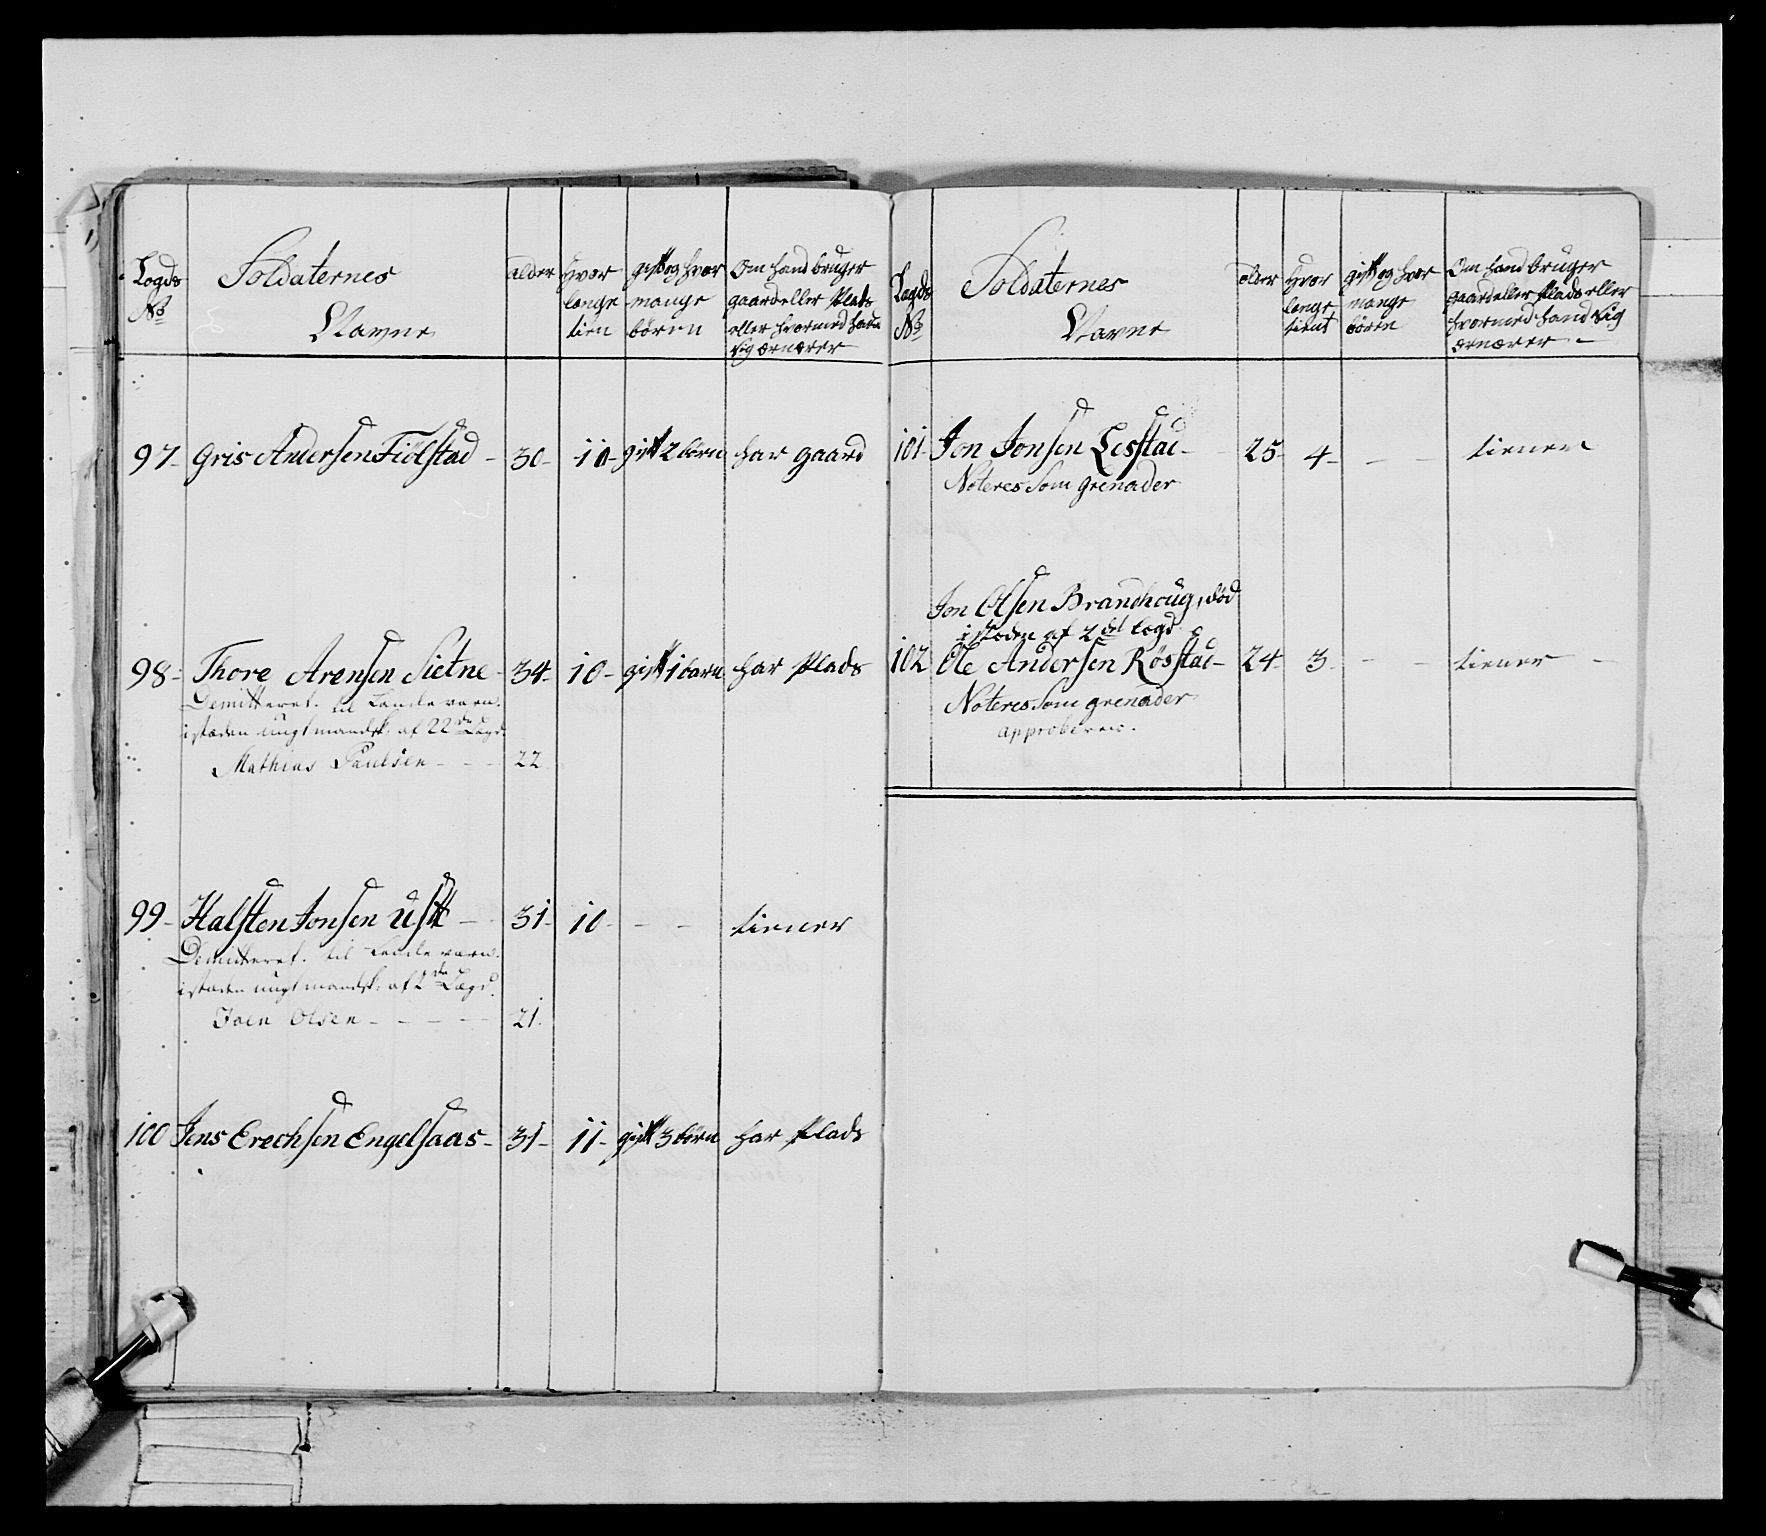 Legds No | Soldaternes Navne | alder | hvor lenge tien | gift og hvor mange børen | Om hand bruger gaard eller Plads eller hvormed hand sig ærnærer
97 | Gris Andersen Fiölstad | 30 | 10 | gift 2 börn | har gaard
98 | Thore Arensen Sietne | 34 | 10 | gift 1 barn | har Plads
Demitteret. til Landeværn.
istæden ungt mandsk: af 22de Lægd
Mathias Paulsen - - - | 22
99 | Halsten Jonsen Ustt | 31 | 10 | - - | tiener
Demitteret. til Landeværn.
istæden ungt mandsk: af 2de Lægd.
Joen Olsen - - - - | 21.
100 | Jens Erechsen Engelsaas | 31 | 11 | gift 3 börn | har Plads
Legds No | Soldaternes Navne | alder | hvor lenge tient | gift og hvor mange börn | Om hand bruger gaard eller Plads eller hvormed hand sig ærnærer
101 | Jon Jonsen Lesstad | 25 | 4 | - - | tiener
Noteres som grenader
Jon Olsen Brandhoug, död
istæden af 2det legd
102 | Ole Andersen Rösstad | 24 | 3 | - - | tiener
Noteres som grenader
approberes.